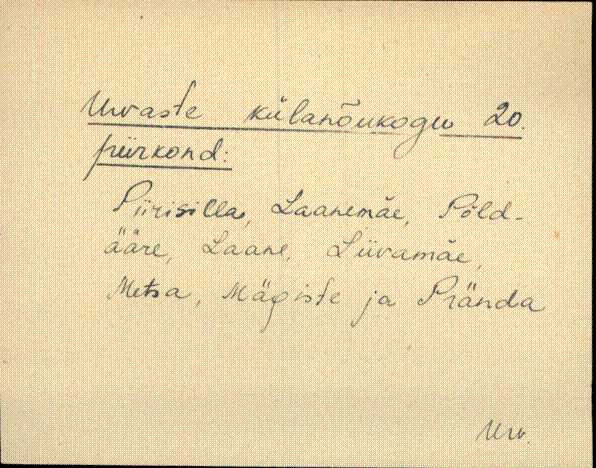 Urvaste külanõukogu 20.
piirkond:
Piirisilla, Laanemäe, Põld-
ääre, Laane, Liivamäe,
Metsa, Mägiste ja Prända
Urv.